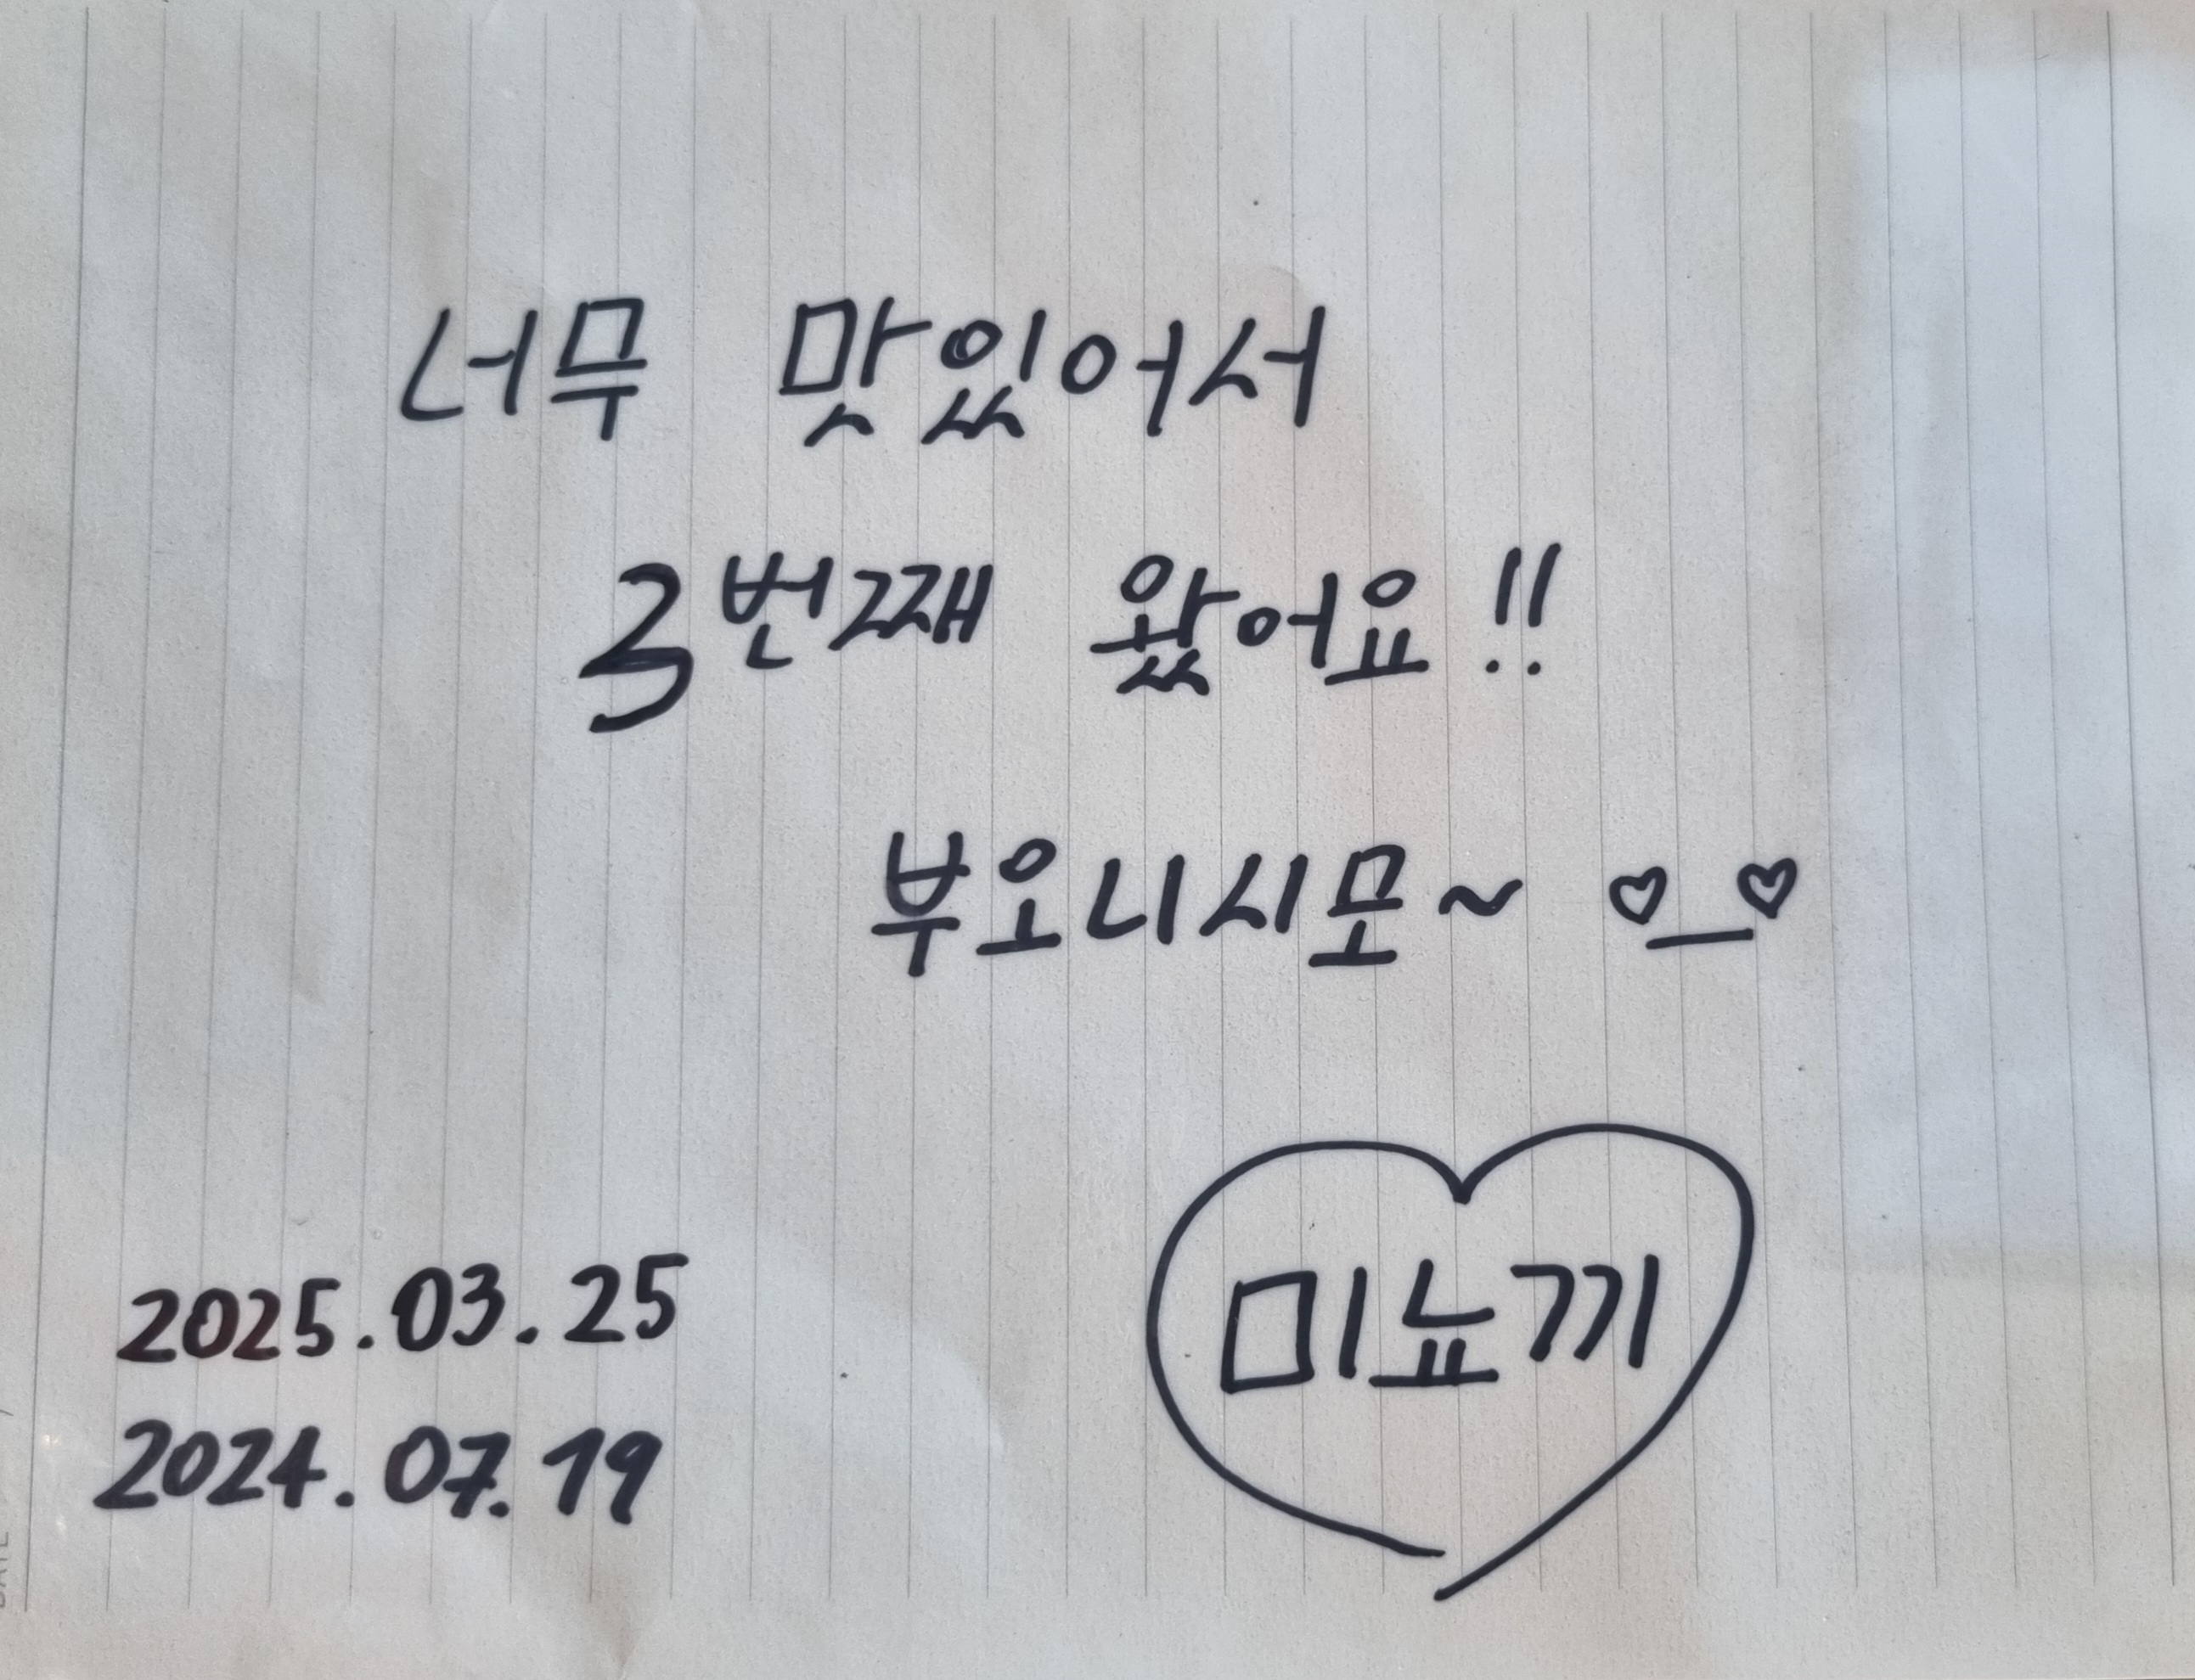 너무 맛있어서
3번째 왔어요!!
부오니시모~ ♡_♡
미뇨끼
2025.03.25
2024.07.19